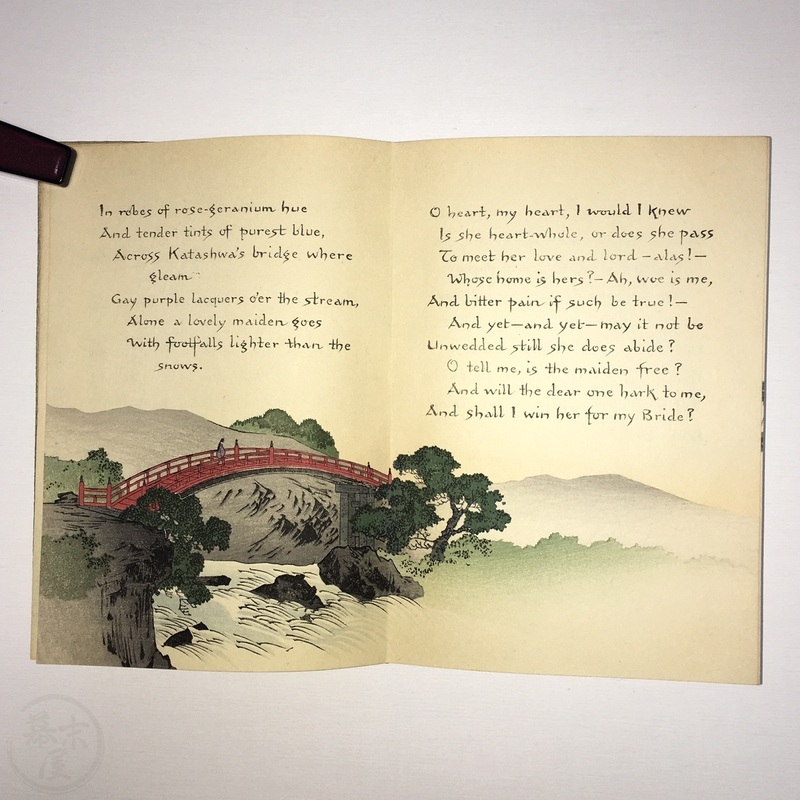 In robes of rose-geranium hue
And tender tints of purest blue,
Across Katashwa's bridge where
gleam
Gay purple lacquers o'er the stream,
Alone a lovely maiden goes
With footfalls lighter than the
snows.
O heart, my heart, I would I knew
Is she heart-whole, or does she pass
To meet her love and lord —alas!—
Whose home is hers?—Ah, woe is me,
And bitter pain if such be true!—
And yet—and yet—may it not be
Unwedded still she does abide?
O tell me, is the maiden free?
And will the dear one hark to me,
And shall I win her for my Bride?
幕末屋